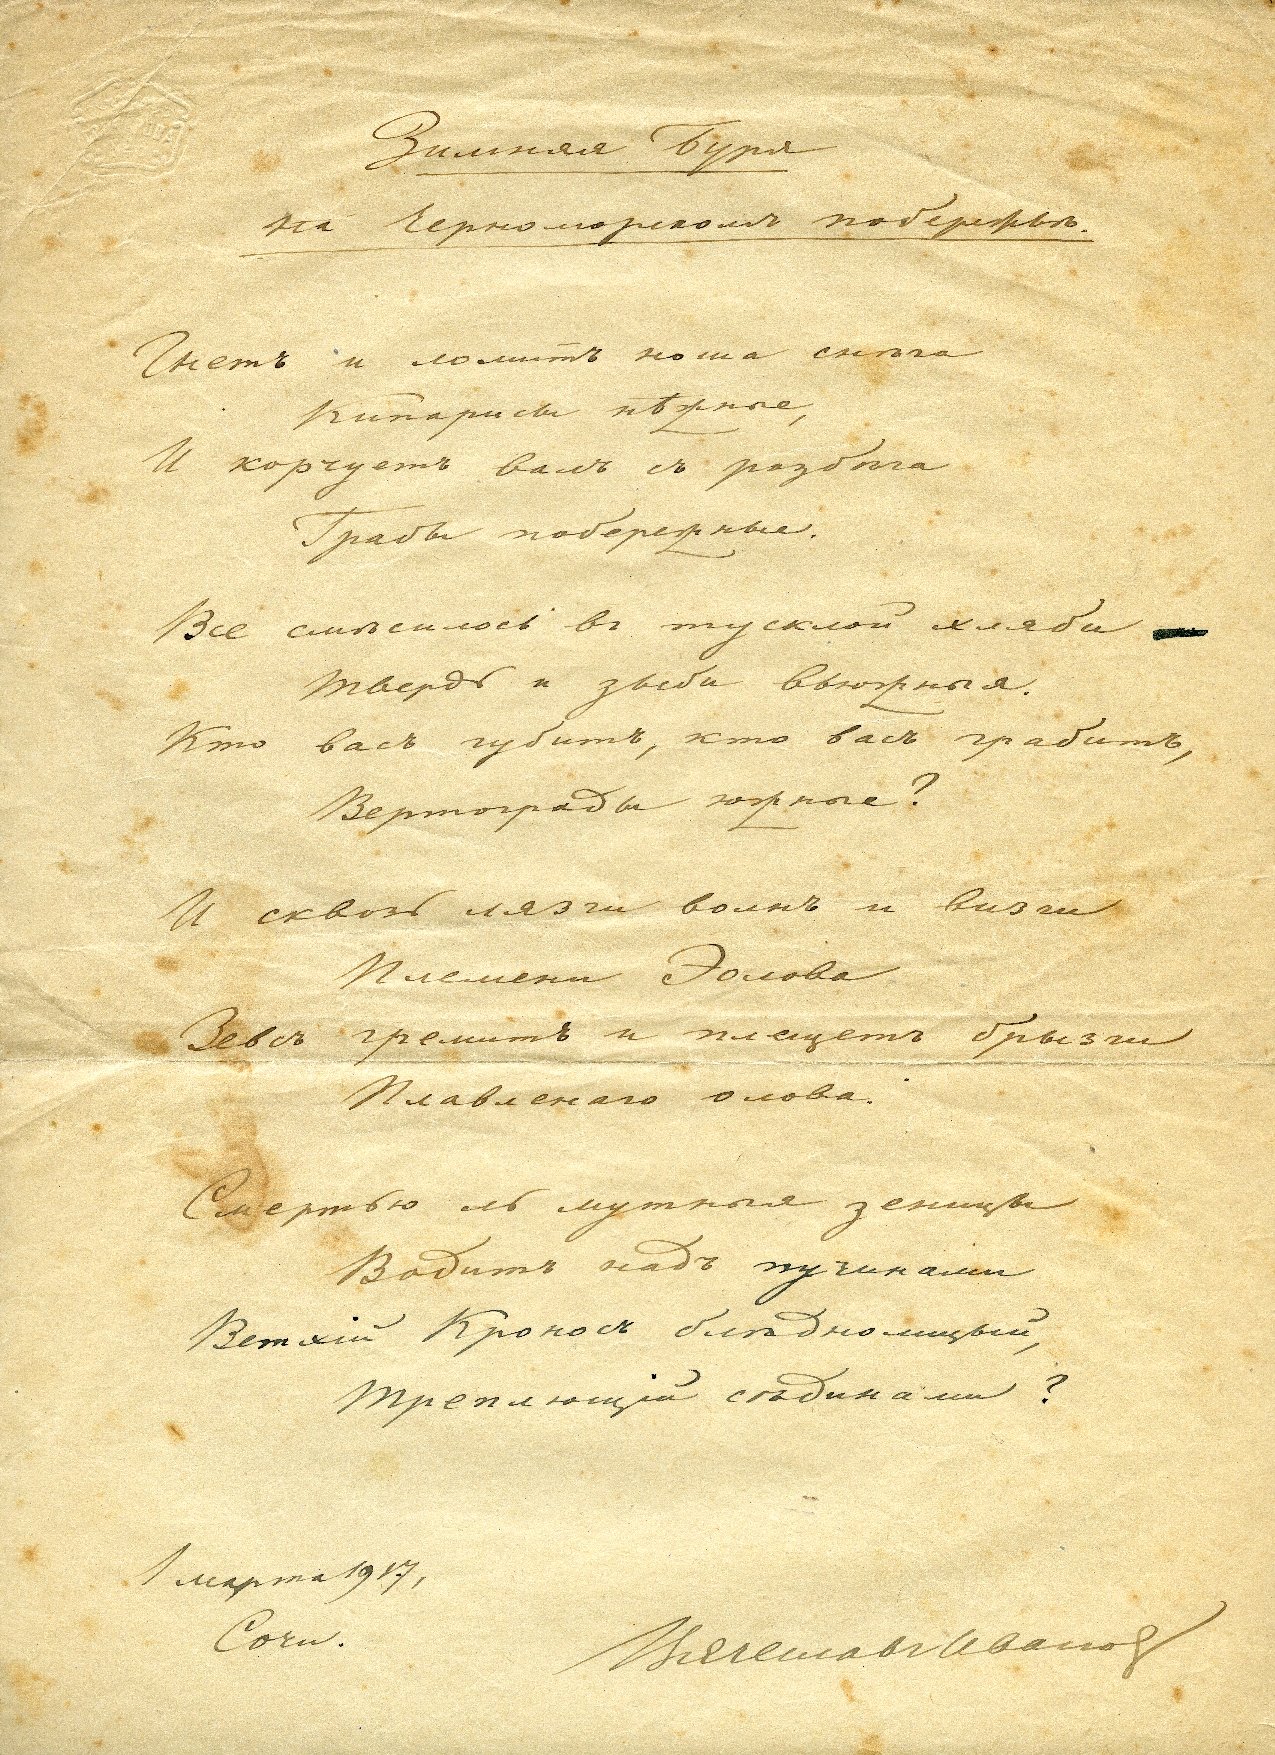 Зимняя Буря
на Черноморскомъ побережьѣ.
Гнетъ и ломитъ ноша снѣга
Кипарисы нѣжные,
И корчуетъ валъ съ разбѣга
Грабы побережные.
Все смѣсилось въ тусклой хляби —
Твердь и зыби вьюжныя.
Кто васъ губитъ, кто васъ грабитъ,
Вертограды южные?
И сквозь лязги волнъ и визги
Племени Эолова
Зевсъ гремитъ и плещетъ брызги
Плавленаго олова.
Смертью ль мутныя зеницы
Водитъ надъ пучинами
Ветхій Кроносъ блѣднолицый,
Треплющій сѣдинами?
1 марта 1917,
Сочи.
Вячеславъ Ивановъ